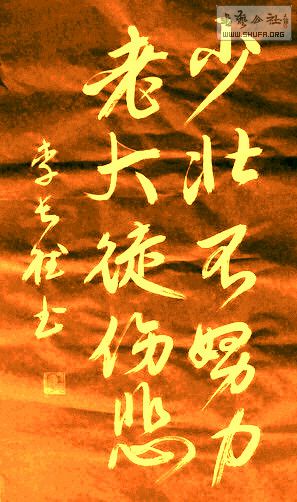 少壮不努力
老大徒伤悲
李长书
公社
WWW.SHUFA.ORG